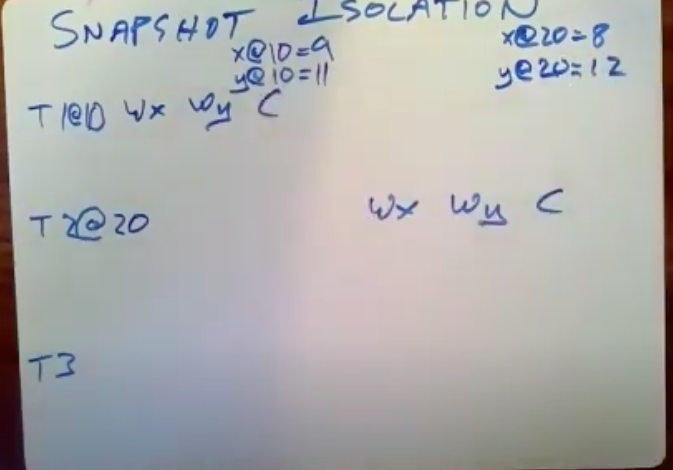 SNAPSHOT ISOLATION
x@10=9 x@20=8
y@10=11 y@20=12
T1@10 Wx Wy C
T2@20 Wx Wy C
T3